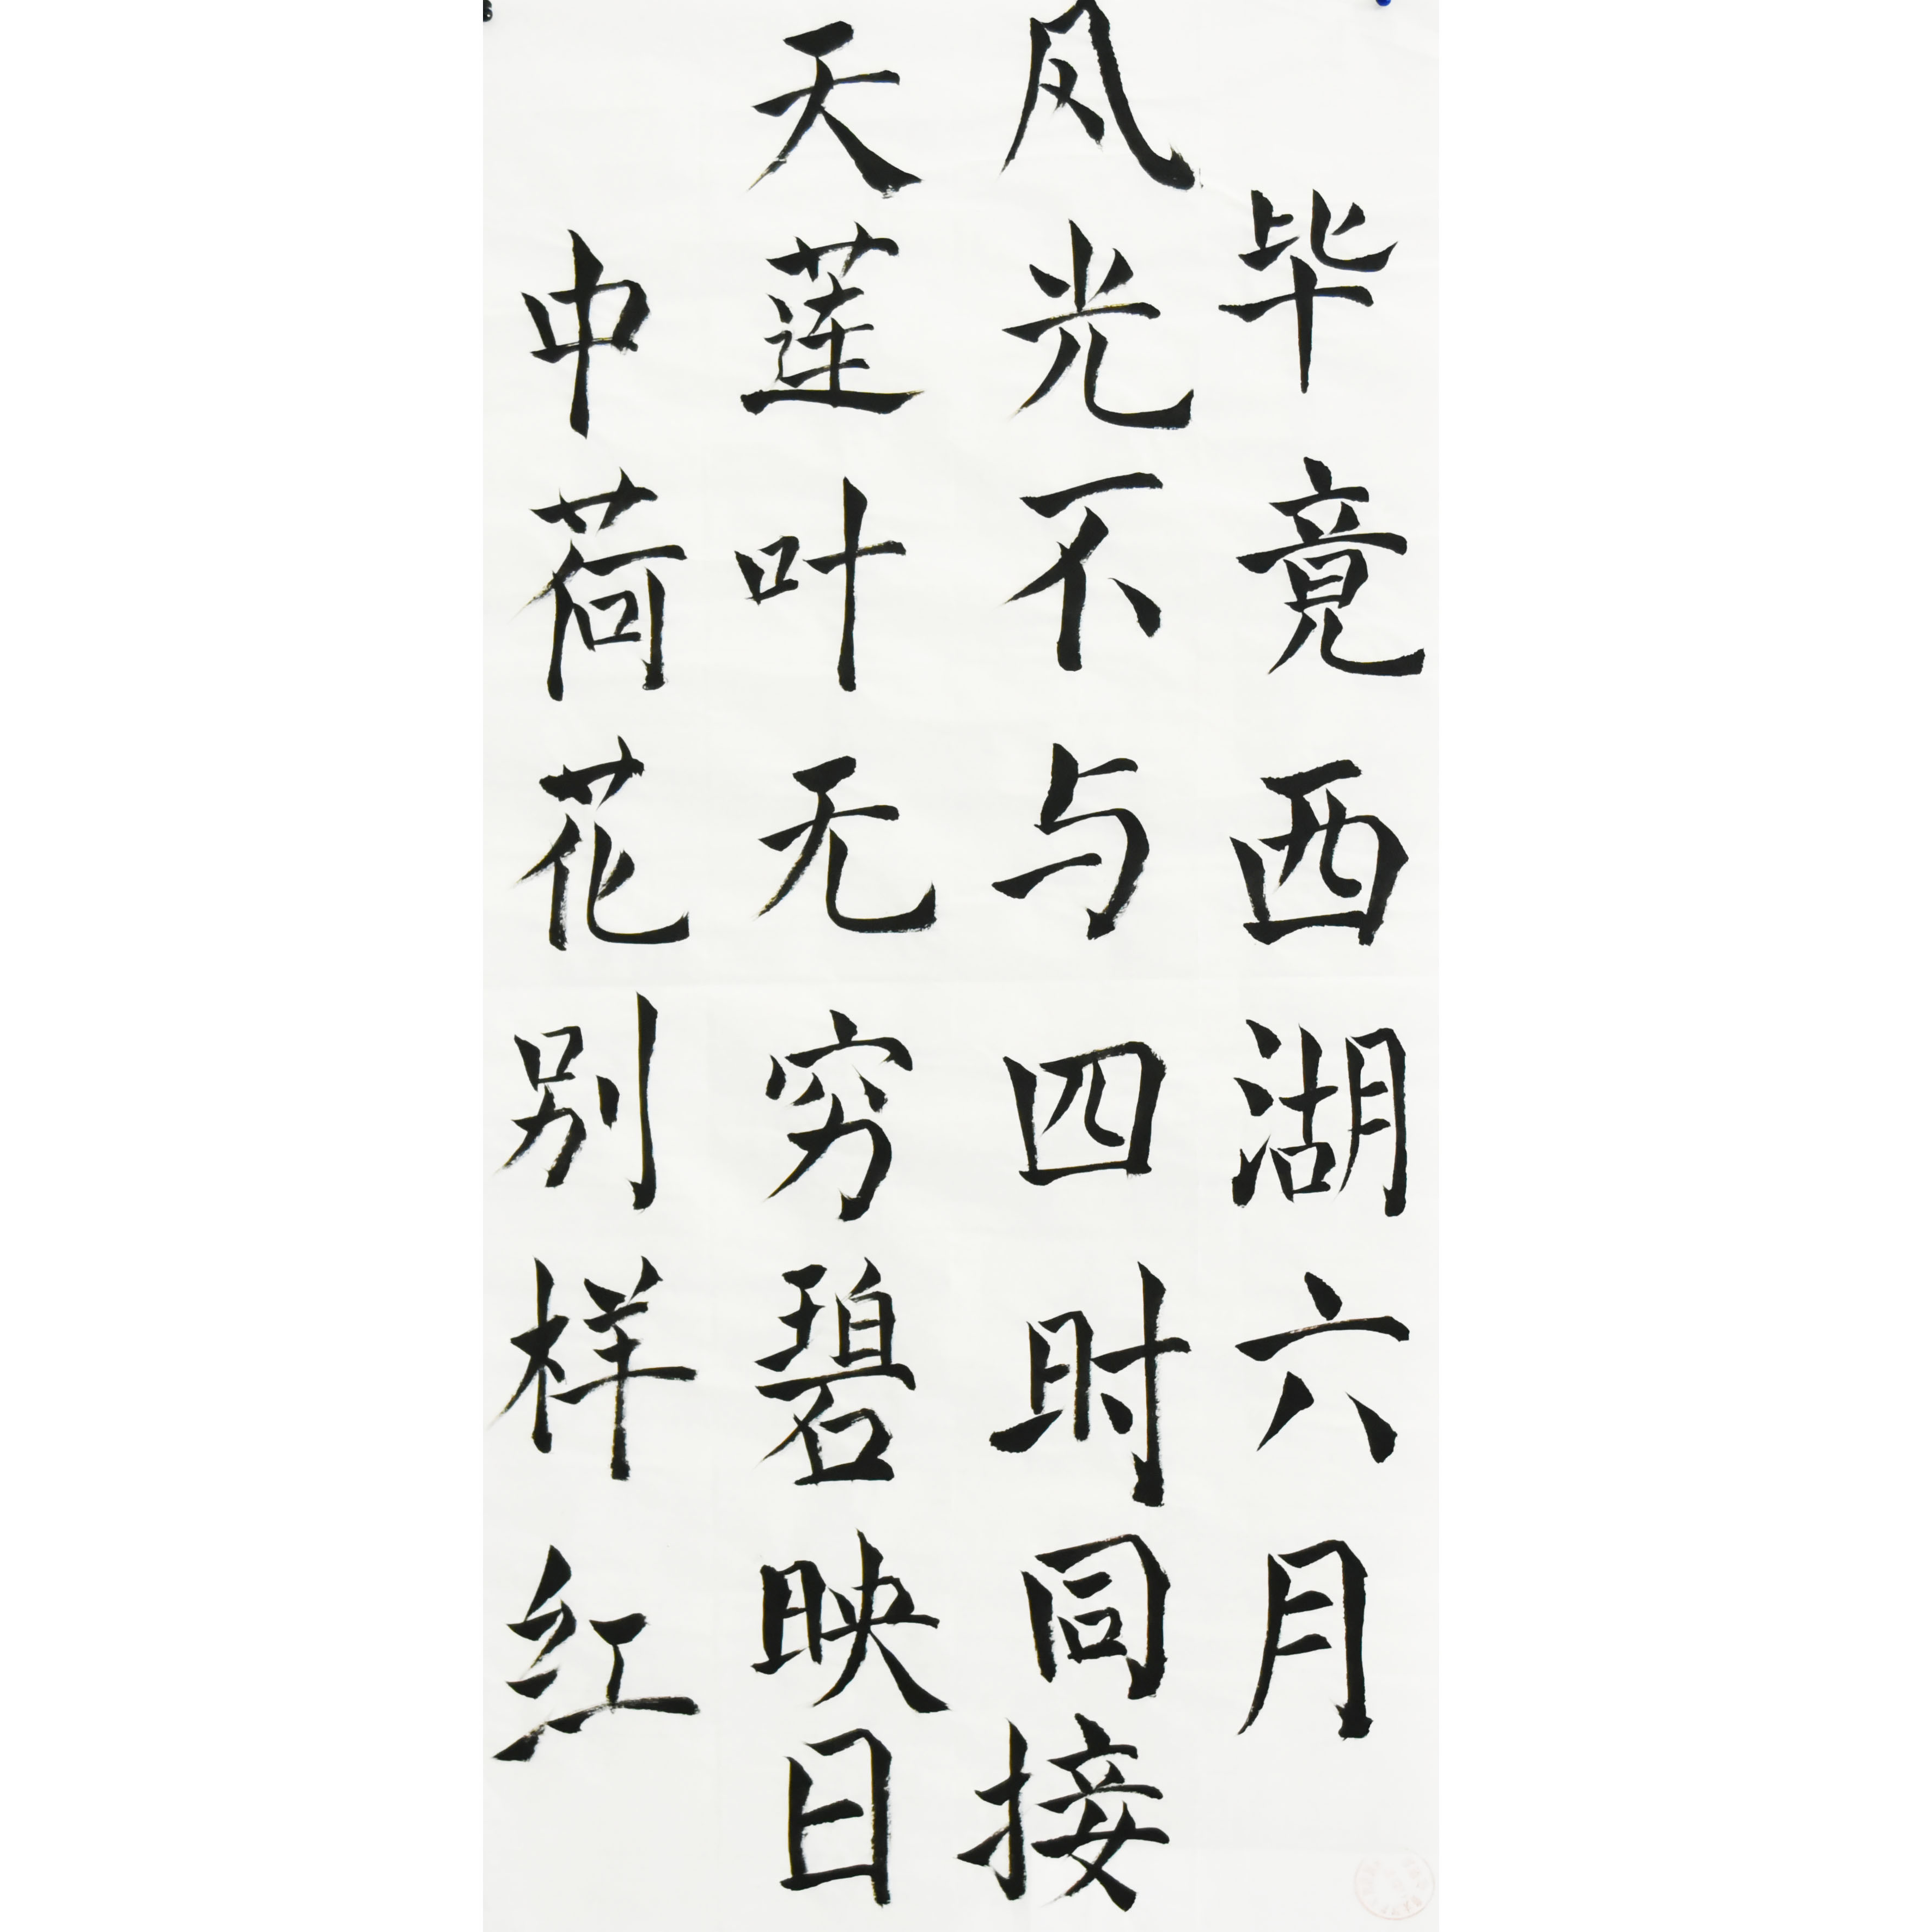 毕竟西湖六月
风光不与四时同接
天莲叶无穷碧映日
中荷花别样红